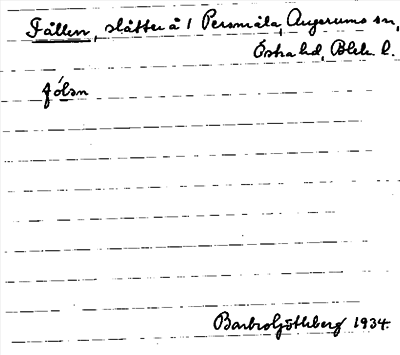 Fållen, slåtter å 1 Persmåla, Augerums sn,
Östra hd, Blek. l.
fólən
Barbro Götheberg 1934.